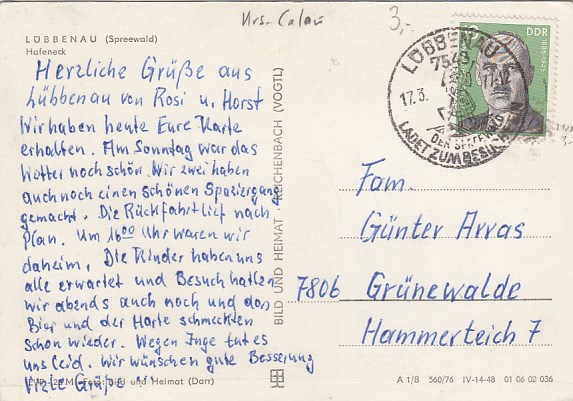 Krs. Calau
3,-
LÜBBENAU (Spreewald)
Hafeneck
Herzliche Grüße aus
Lübbenau von Rosi u. Horst
Wir haben heute Eure Karte
erhalten. Am Sonntag war das
Wetter noch schön. Wir zwei haben
auch noch einen schönen Spaziergang
gemacht. Die Rückfahrt lief nach
Plan. Um 16⁰⁰ Uhr waren wir
daheim. Die Kinder haben uns
alle erwartet und Besuch hatten
wir abends auch noch und das
Bier und der Harte schmeckten
schon wieder. Wegen Inge tut es
uns leid. Wir wünschen gute Besserung
Viele Grüße
Foto: Bild und Heimat (Darr)
BILD UND HEIMAT REICHENBACH (VOGTL)
DDR
LÜBBENAU
7543
17.3.
DER SPREEWALD
LADET ZUM BESUCH
Fam.
Günter Arras
7806 Grünewalde
Hammerteich 7
A 1/B 560/76 IV-14-48 01 06 02 036